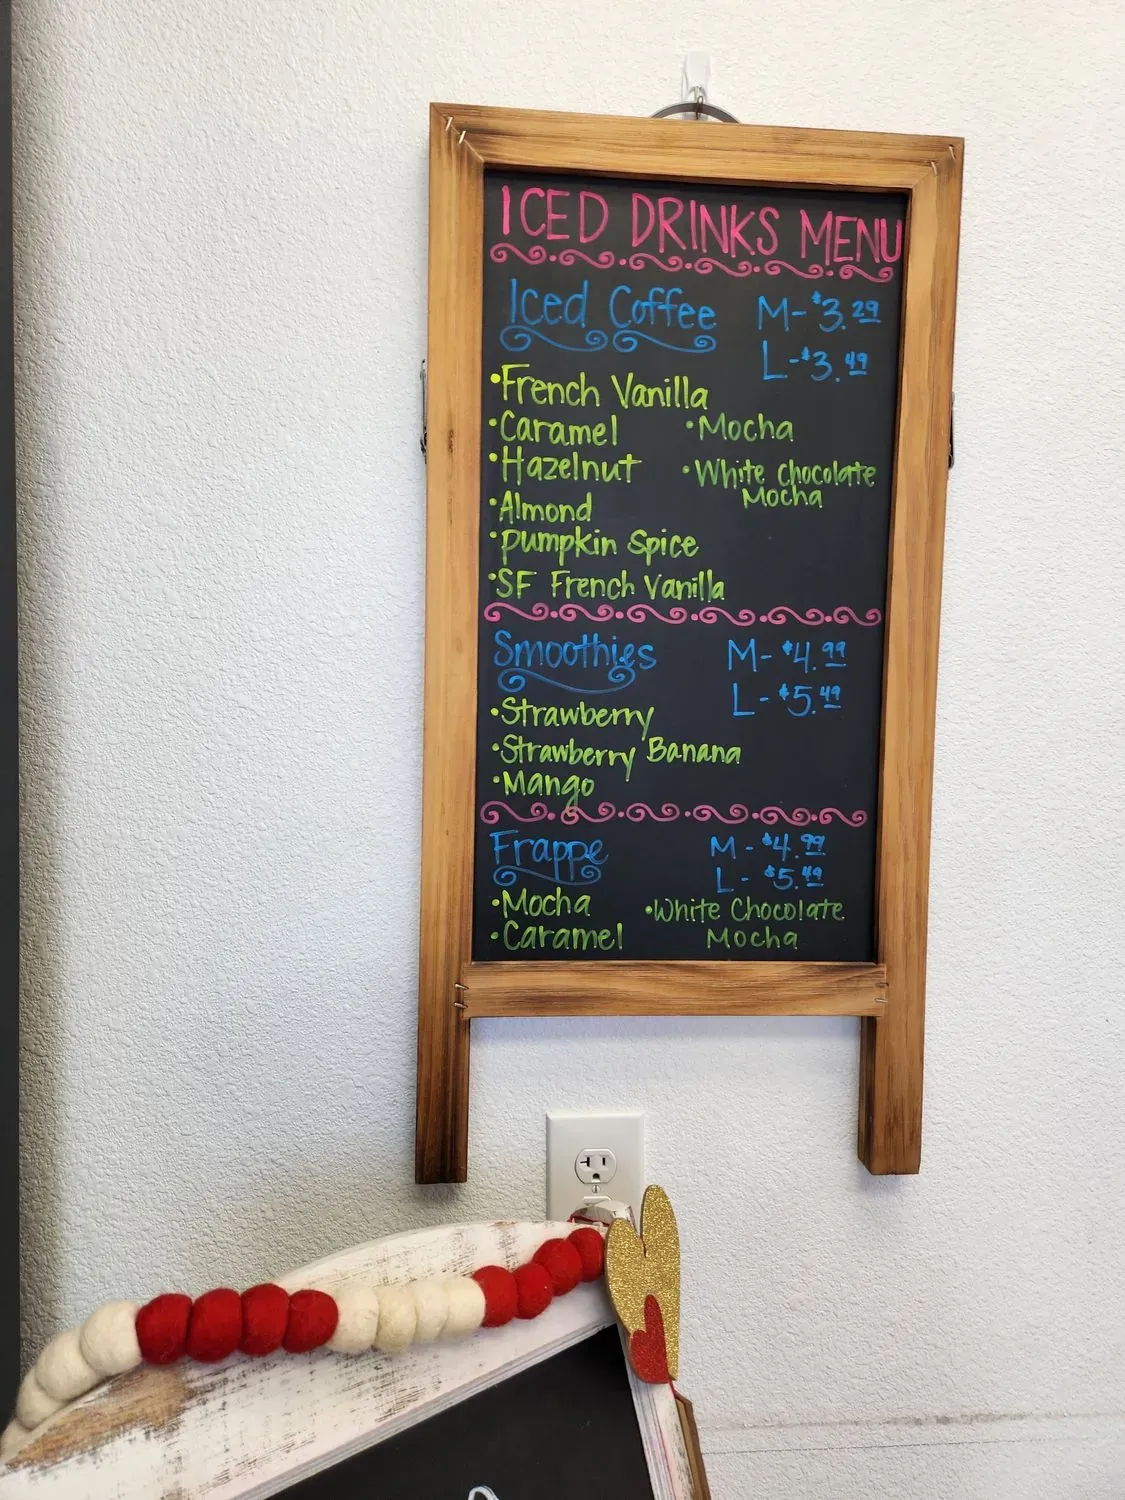 ICED DRINKS MENU
Iced Coffee M-$3.29
L-$3.49
•French Vanilla
•Caramel •Mocha
•Hazelnut •White Chocolate
Mocha
•Almond
•Pumpkin Spice
•SF French Vanilla
Smoothies M-$4.99
L-$5.49
•Strawberry
•Strawberry Banana
•Mango
Frappe M-$4.99
L-$5.49
•Mocha •White Chocolate
•Caramel Mocha